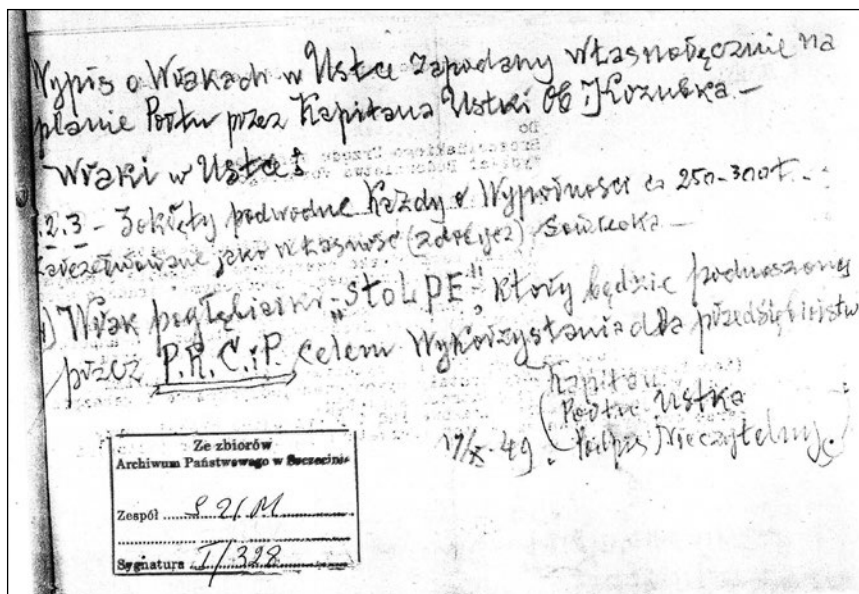 Wypis o Wrakach w Ustce zapodany własnoręcznie na
planie Portu przez Kapitana Ustki Ob. J Kozubka. —
Wraki w Ustce:
1.2.3 - 3 okręty podwodne Każdy o Wyporności ca 250-300 t. —
Zarezerwowane jako własność (zdobycz) Sowiecka —
4) Wrak pogłębiarki „STOLPE", który będzie podnoszony
przez P.R.C.iP. celem Wykorzystania dla przedsiębiorstwa
Kapitan
Portu Ustka
17/X-49. Podpis Nieczytelny.
Ze zbiorów
Archiwum Państwowego w Szczecinie
Zespół
Sygnatura I/328